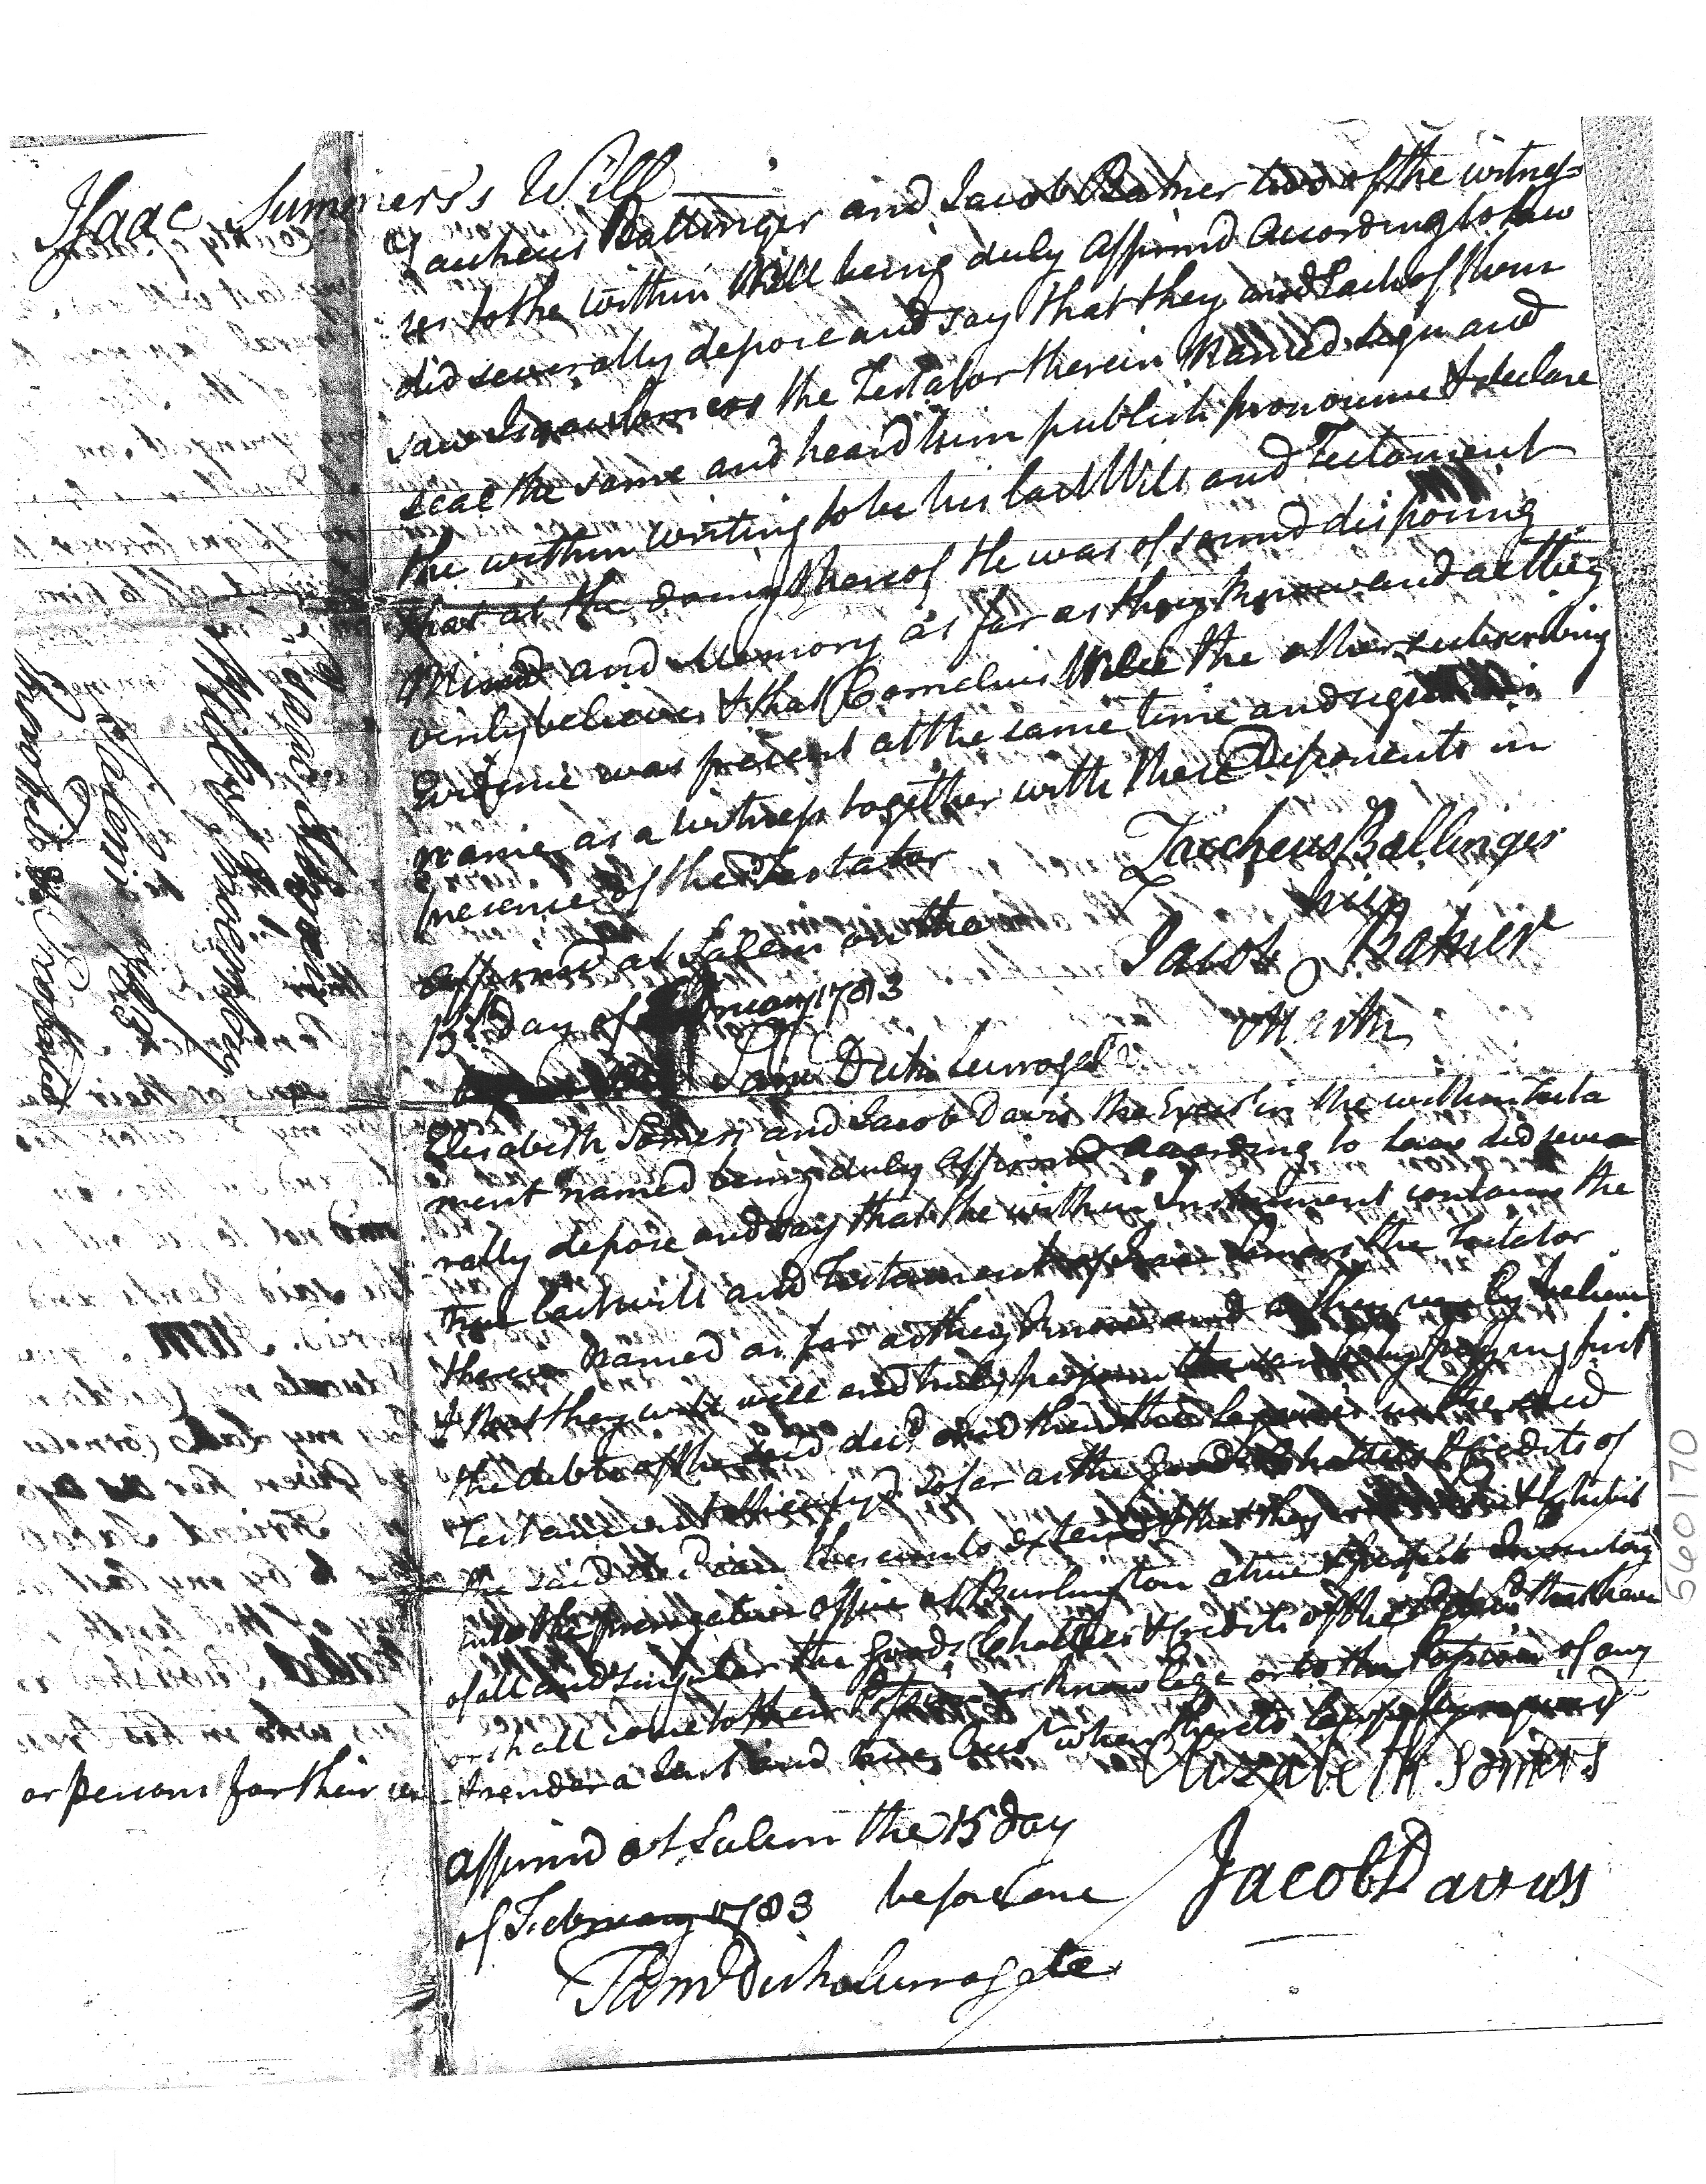 Isaac Summers's Will
Zaucheus Ballinger and Jacob Baker two of the witnes=
ses to the within Will being duly affirmd according to law
did severally depose and say that they and Each of them
saw Isaac Somers the Testator therein Named sign and
seal the same and heard him publish pronounce & declare
the within writing to be his last Will and Testament
that at the doing thereof he was of sound disposing
Mind and Memory as far as they know and as they
verily believe & that Cornelius the other subscribing
Evidence was present at the same time and signd his
name as a witness together with these Deponents in
presence of the Testator
Zaccheus Ballinger
affirmd at Salem on the
his
Jacob O Baker
15th day of February 1783
Mark
Sam Dick Surrogate
Elisabeth Somers and Jacob Davis the Exects in the within Testa
ment named being duly affirmd according to law did seve
rally depose and say that the within Instrument contains the
true last will and Testament of Isaac Somers the Testator
therein named as far as they know and as they verily believe
& that they will well and truly perform the same by paying first
the debts of the said decd and then the legacies in the said
Testament specifyd so far as the goods Chattels & Credits of
the said decd can thereunto extend & that they will make & Exhibit
into the prerogative office at Burlington a true & perfect Inventory
of all and singular the goods Chattles & Credits of the decd that have
or shall come to their knowlege or to the possession of any
or persons for their use & render a just and true Acct when thereto lawfully required
Elizabeth Somers
affirmd at Salem the 15 day
of February 1783 before me
Jacob Daviss
Sam Dick Surrogate
560170